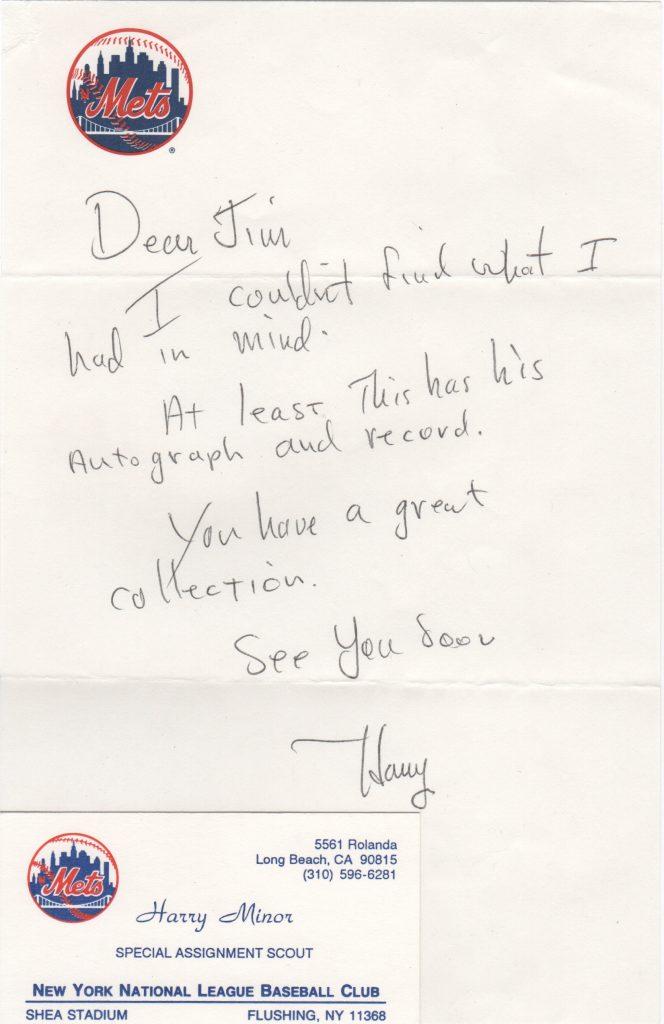 Mets
Dear Jim
I couldn't find what I
had in mind.
At least This has his
Autograph and record.
You have a great
collection.
See You Soon
Harry
Mets
5561 Rolanda
Long Beach, CA 90815
(310) 596-6281
Harry Minor
SPECIAL ASSIGNMENT SCOUT
NEW YORK NATIONAL LEAGUE BASEBALL CLUB
SHEA STADIUM FLUSHING, NY 11368